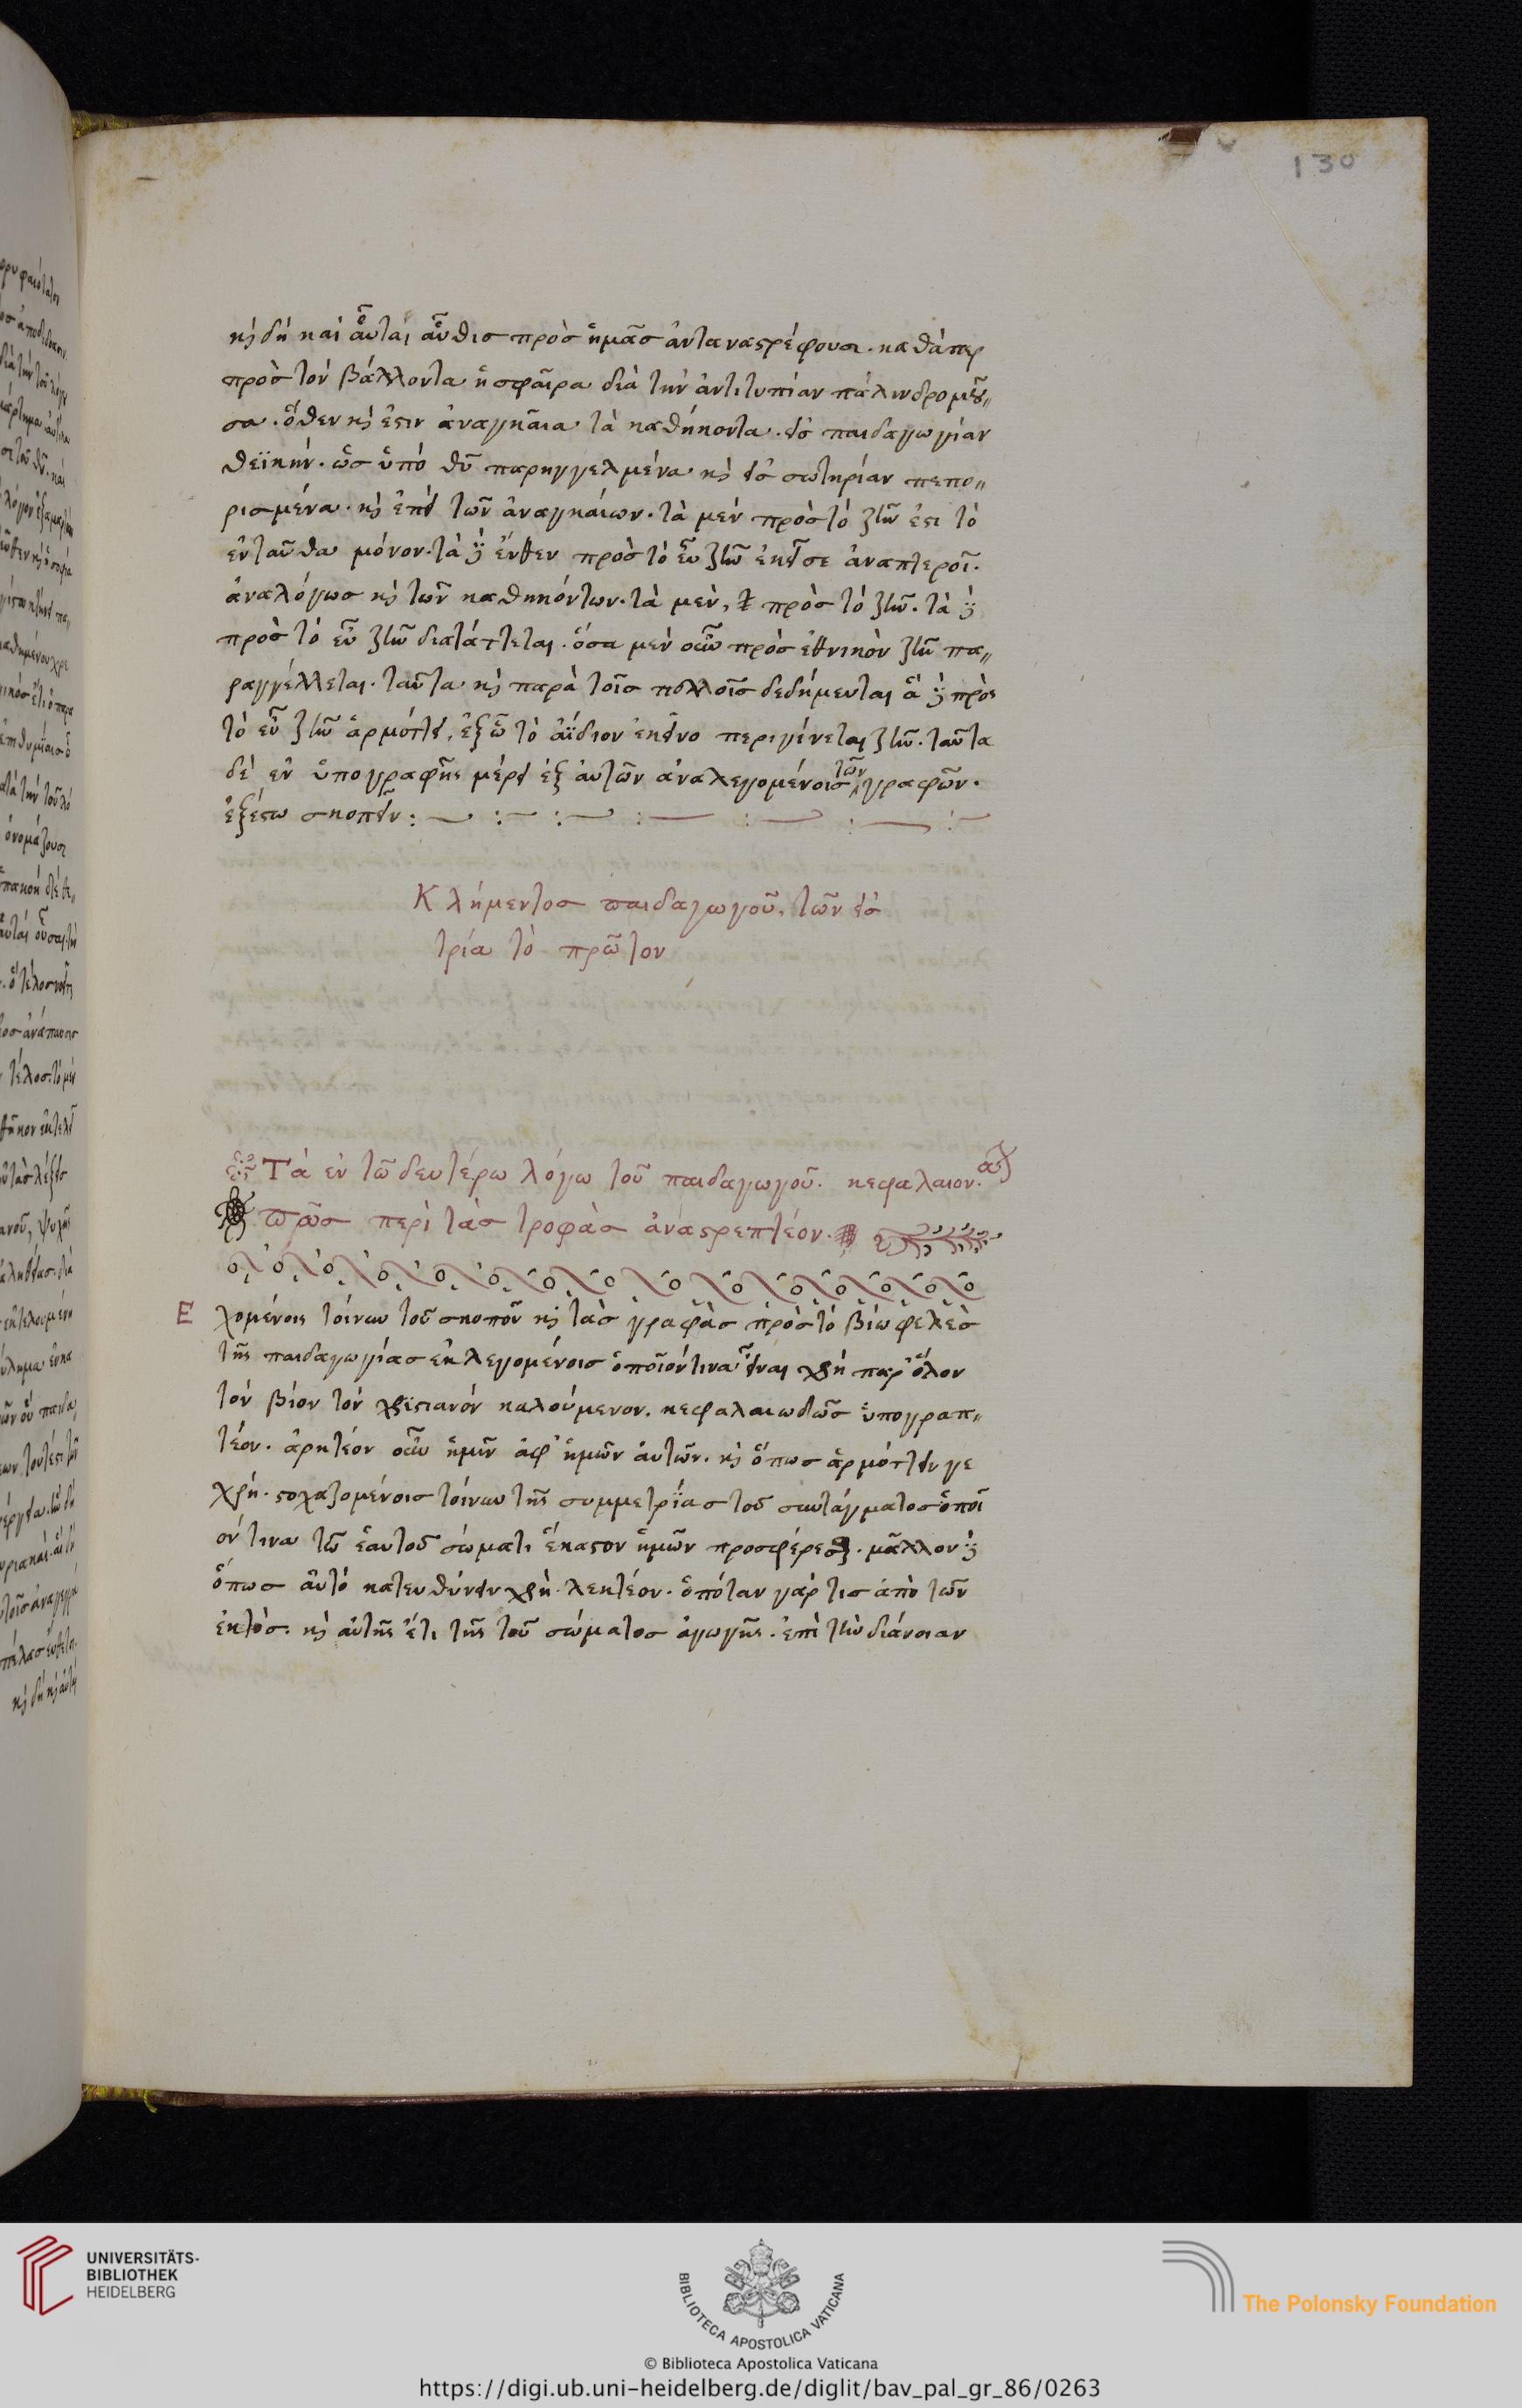 130
κὶ δὴ καὶ αὗται αὖθις πρὸς ἡμᾶς ἀνταναστρέφουσι. καθάπερ
πρὸς τὸν βάλλοντα ἡ σφαῖρα διὰ τὴν ἀντιτυπίαν παλινδρομοῦ„
σα. ὅθεν κὶ ἔστιν ἀναγκαῖα τὰ καθήκοντα. εἰς παιδαγωγίαν
θεϊκήν. ὡς ὑπὸ θῦ παρηγγελμένα κὶ εἰς σωτηρίαν πεπο„
ρισμένα. κὶ ἐπεὶ τῶν ἀναγκαίων. τὰ μὲν πρὸς τὸ ζῆν ἐστι τὸ
ἐνταῦθα μόνον. τὰ δὲ ἔνθεν πρὸς τὸ εὖ ζῆν ἐκεῖσε ἀναπτεροῖ.
ἀναλόγως κὶ τῶν καθηκόντων. τὰ μὲν, πρὸς τὸ ζῆν. τὰ δὲ
πρὸς τὸ εὖ ζῆν διατάττεται. ὅσα μὲν οὖν πρὸς ἐθνικὸν ζῆν πα„
ραγγέλλεται. ταῦτα κὶ παρὰ τοῖς πολλοῖς δεδήμευται ἃ δὲ πρὸς
τὸ εὖ ζῆν ἁρμόττει. ἐξ ὧν τὸ ἀΐδιον ἐκεῖνο περιγίνεται ζῆν. ταῦτα
δὲ ἐν ὑπογραφῆς μέρει ἐξ αὐτῶν ἀναλεγομένοις τῶν γραφῶν.
ἐξέστω σκοπεῖν :
Κλήμεντος παιδαγωγοῦ, τῶν εἰς
τρία τὸ πρῶτον
Τὰ ἐν τῶ δευτέρω λόγω τοῦ παιδαγωγοῦ. κεφαλαιον. α
πῶς περὶ τὰς τροφὰς ἀναστρεπτέον.
Ε χομένοις τοίνυν τοῦ σκοποῦ κὶ τὰς γραφὰς πρὸς τὸ βιωφελὲς
τῆς παιδαγωγίας ἐκλεγομένοις ὁποῖόν τινα εἶναι χρὴ παρ' ὅλον
τὸν βίον τὸν χριστιανὸν καλούμενον. κεφαλαιωδῶς ὑπογραπ„
τέον. ἀρκτέον οὖν ἡμῖν ἀφ' ἡμῶν αὐτῶν. κὶ ὅπως ἁρμόττειν γε
χρή. στοχαζομένοις τοίνυν τῆς συμμετρίας τοῦ συντάγματος ὁποῖ
όν τινα τῶ ἑαυτοῦ σώματι ἕκαστον ἡμῶν προσφέρεσθαι. μᾶλλον δὲ
ὅπως αὐτὸ κατευθύνειν χρὴ. λεκτέον. ὁπόταν γάρ τις ἀπὸ τῶν
ἐκτὸς. κὶ αὐτῆς ἔτι τῆς τοῦ σώματος ἀγωγῆς. ἐπὶ τὴν διάνοιαν
UNIVERSITÄTS-
BIBLIOTHEK
HEIDELBERG
BIBLIOTECA APOSTOLICA VATICANA
The Polonsky Foundation
© Biblioteca Apostolica Vaticana
https://digi.ub.uni-heidelberg.de/diglit/bav_pal_gr_86/0263